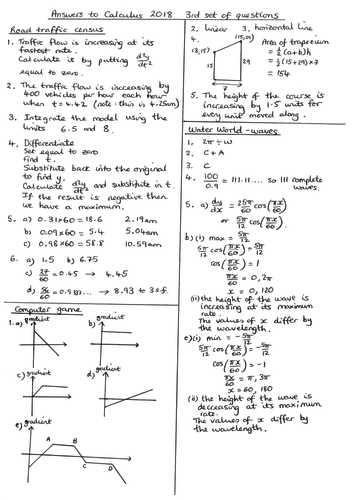 Answers to Calculus 2018 3rd set of questions
Road traffic census
1. Traffic flow is increasing at its
fastest rate.
Calculate it by putting d²y/dt²
equal to zero.
2. The traffic flow is increasing by
400 vehicles per hour each hour
when t=4.42 (note: this is 4.25am)
3. Integrate the model using the
limits 6.5 and 8.
4. Differentiate
Set equal to zero
Find t.
Substitute back into the original
to find y.
Calculate d²y/dt² and substitute in t.
If the result is negative then
we have a maximum.
5. a) 0.31×60=18.6 2.19am
b) 0.09×60=5.4 5.04am
c) 0.98×60=58.8 10.59am
6. a) 1.5 b) 6.75
c) 27/60=0.45 → 4.45
d) 56/60=0.933... → 8.93 to 3s.f.
Computer game
1. a) gradient
b) gradient
c) gradient
d) gradient
e) gradient
A B
C D
2. linear 3. horizontal line
4. (15,24)
(8,15)
15 29
7
Area of trapezium
= ½(a+b)h
= ½(15+29)×7
= 154
5. The height of the course is
increasing by 1.5 units for
every unit moved along.
Water World - waves
1. 2π÷w
2. C+A
3. C
4. 100/0.9 = 111.11..... So 111 complete
waves.
5. a) dy/dx = 25π/60 cos(πx/60)
or 5π/12 cos(πx/60)
b)(i) max = 5π/12
5π/12 cos(πx/60) = 5π/12
cos(πx/60) = 1
πx/60 = 0, 2π
x = 0, 120
(ii) the height of the wave is
increasing at its maximum
rate.
The values of x differ by
the wavelength.
c)(i) min = -5π/12
5π/12 cos(πx/60) = -5π/12
cos(πx/60) = -1
πx/60 = π, 3π
x = 60, 180
(ii) the height of the wave is
decreasing at its maximum
rate.
The values of x differ by
the wavelength.